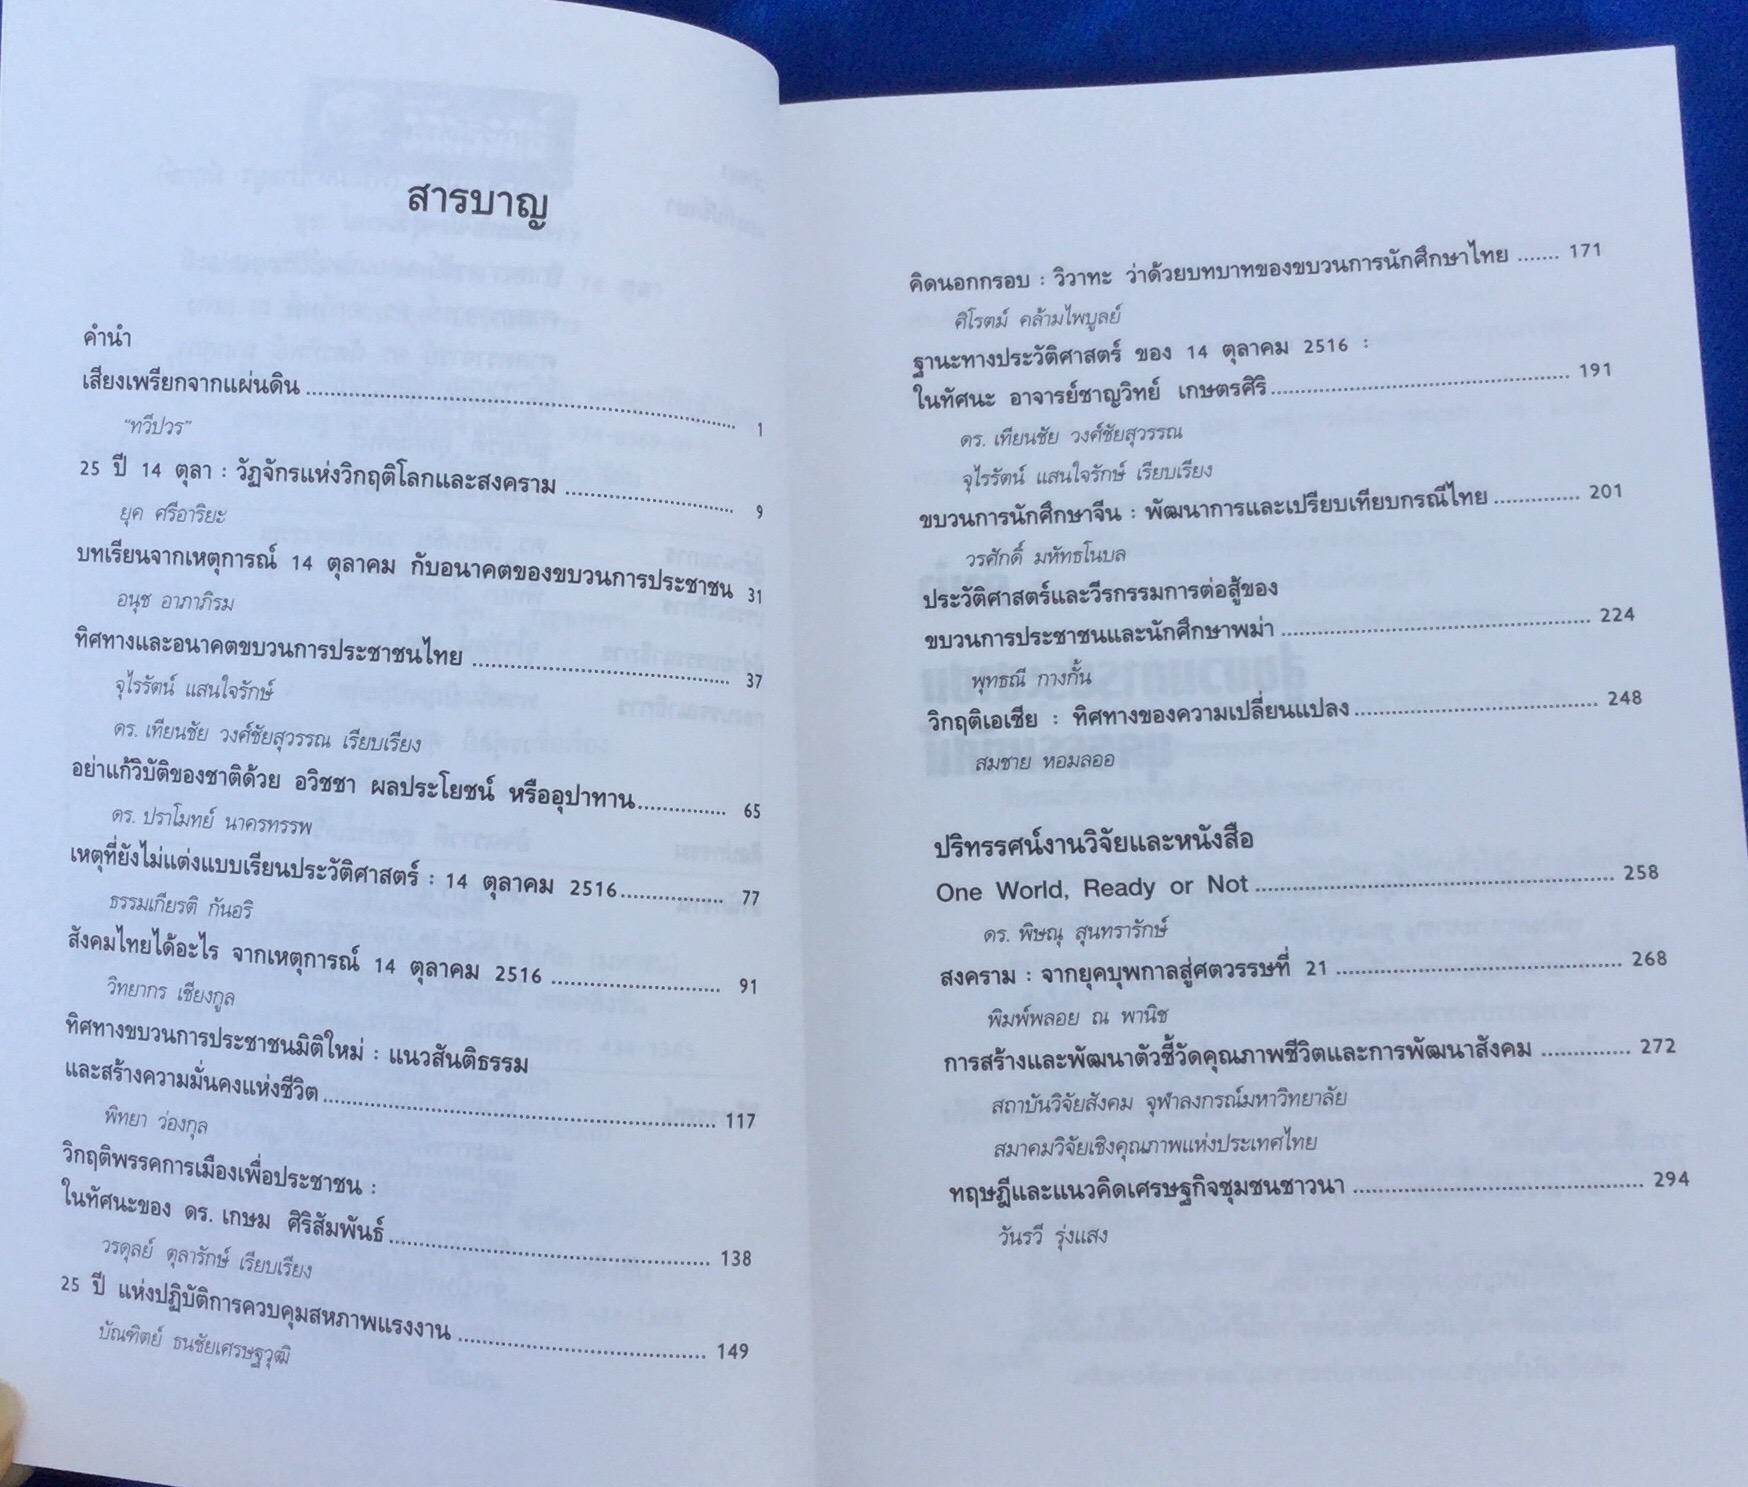 สารบาญ
คำนำ
เสียงเพรียกจากแผ่นดิน ........ 1
"ทวีปวร"
25 ปี 14 ตุลา : วัฏจักรแห่งวิกฤติโลกและสงคราม ........ 9
ยุค ศรีอาริยะ
บทเรียนจากเหตุการณ์ 14 ตุลาคม กับอนาคตของขบวนการประชาชน 31
อนุช อาภาภิรม
ทิศทางและอนาคตขบวนการประชาชนไทย ........ 37
จุไรรัตน์ แสนใจรักษ์
ดร. เทียนชัย วงศ์ชัยสุวรรณ เรียบเรียง
อย่าแก้วิบัติของชาติด้วย อวิชชา ผลประโยชน์ หรืออุปาทาน ........ 65
ดร. ปราโมทย์ นาครทรรพ
เหตุที่ยังไม่แต่งแบบเรียนประวัติศาสตร์ : 14 ตุลาคม 2516 ........ 77
ธรรมเกียรติ กันอริ
สังคมไทยได้อะไร จากเหตุการณ์ 14 ตุลาคม 2516 ........ 91
วิทยากร เชียงกูล
ทิศทางขบวนการประชาชนมิติใหม่ : แนวสันติธรรม
และสร้างความมั่นคงแห่งชีวิต ........ 117
พิทยา ว่องกุล
วิกฤติพรรคการเมืองเพื่อประชาชน :
ในทัศนะของ ดร. เกษม ศิริสัมพันธ์ ........ 138
วรดุลย์ ตุลารักษ์ เรียบเรียง
25 ปี แห่งปฏิบัติการควบคุมสหภาพแรงงาน ........ 149
บัณฑิตย์ ธนชัยเศรษฐวุฒิ
คิดนอกกรอบ : วิวาทะ ว่าด้วยบทบาทของขบวนการนักศึกษาไทย ....... 171
ศิโรตม์ คล้ามไพบูลย์
ฐานะทางประวัติศาสตร์ ของ 14 ตุลาคม 2516 :
ในทัศนะ อาจารย์ชาญวิทย์ เกษตรศิริ ........ 191
ดร. เทียนชัย วงศ์ชัยสุวรรณ
จุไรรัตน์ แสนใจรักษ์ เรียบเรียง
ขบวนการนักศึกษาจีน : พัฒนาการและเปรียบเทียบกรณีไทย ........ 201
วรศักดิ์ มหัทธโนบล
ประวัติศาสตร์และวีรกรรมการต่อสู้ของ
ขบวนการประชาชนและนักศึกษาพม่า ........ 224
พุทธณี กางกั้น
วิกฤติเอเชีย : ทิศทางของความเปลี่ยนแปลง ........ 248
สมชาย หอมลออ
ปริทรรศน์งานวิจัยและหนังสือ
One World, Ready or Not ........ 258
ดร. พิษณุ สุนทรารักษ์
สงคราม : จากยุคบุพกาลสู่ศตวรรษที่ 21 ........ 268
พิมพ์พลอย ณ พานิช
การสร้างและพัฒนาตัวชี้วัดคุณภาพชีวิตและการพัฒนาสังคม ........ 272
สถาบันวิจัยสังคม จุฬาลงกรณ์มหาวิทยาลัย
สมาคมวิจัยเชิงคุณภาพแห่งประเทศไทย
ทฤษฎีและแนวคิดเศรษฐกิจชุมชนชาวนา ........ 294
วันรวี รุ่งแสง